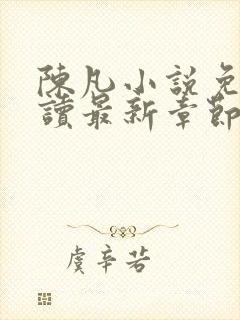 陳凡小說免
讀最新章節
虞辛若